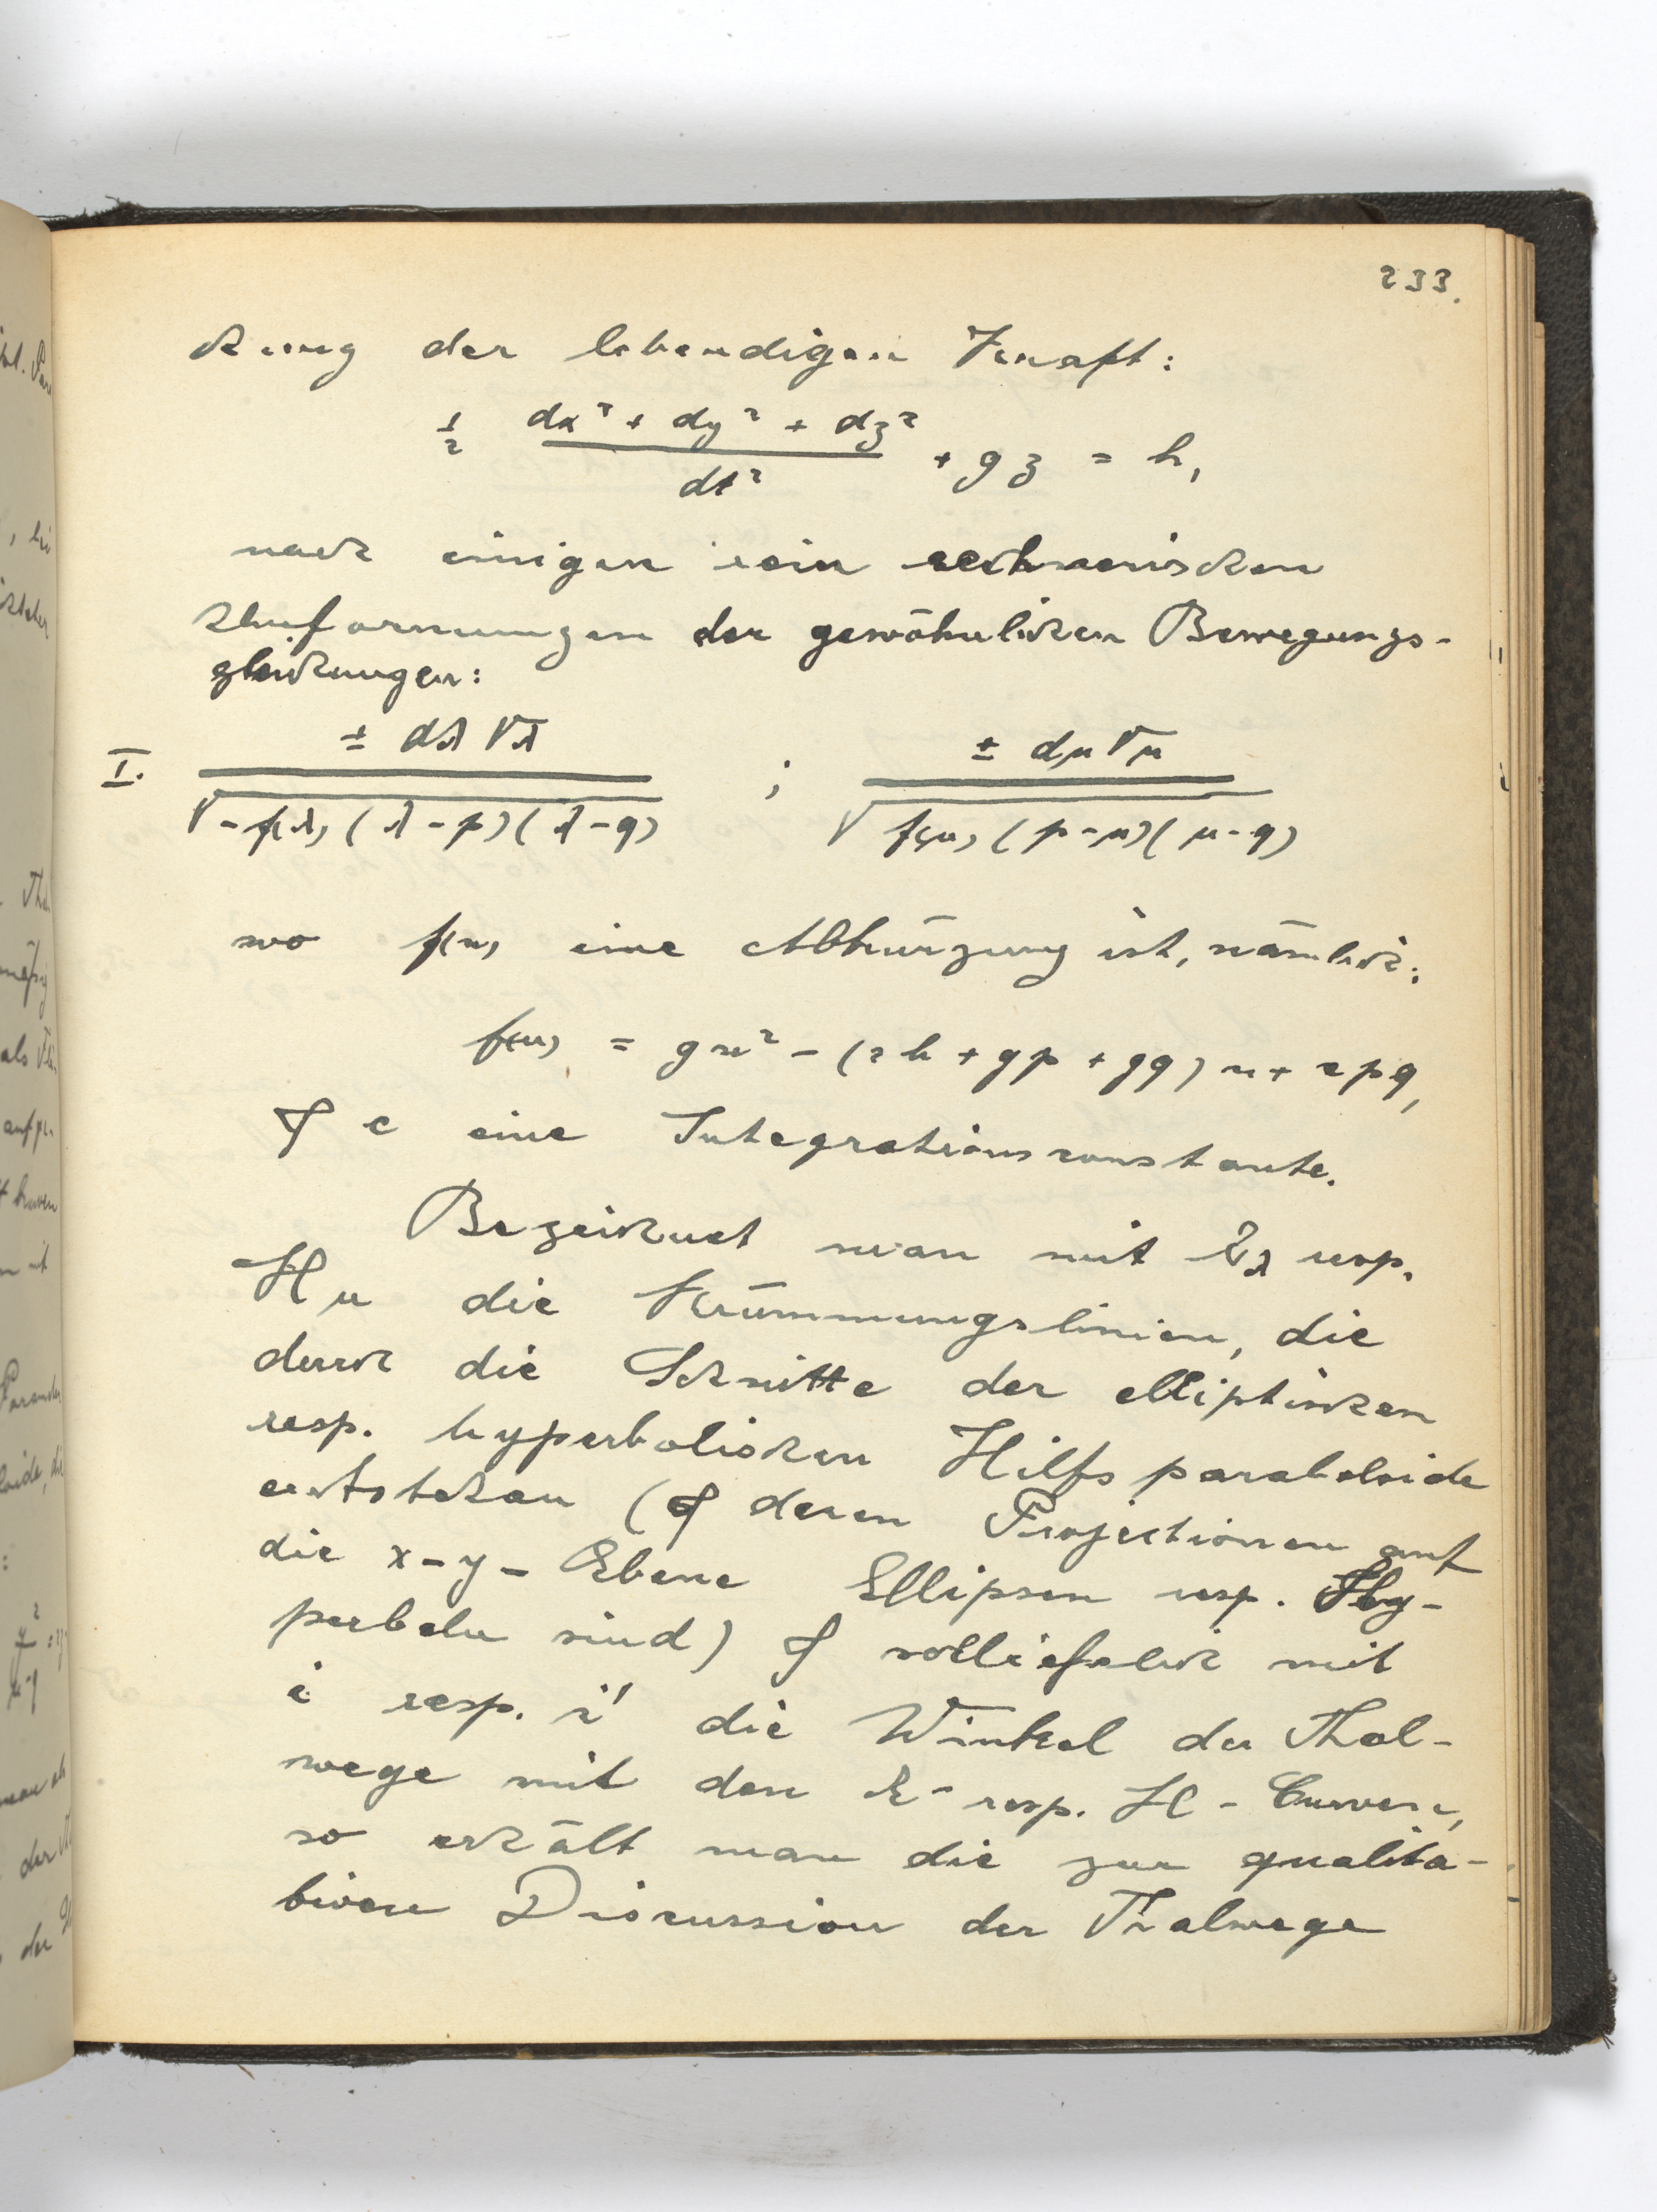 233.
chung der lebendigen Kraft:
½ (dx² + dy² + dz²)/dt² + gz = h,
nach einigen rein rechnerischen
Umformungen der gewöhnlichen Bewegungs-
gleichungen:
I. ± dλ √λ / √-f(λ) (λ-p)(λ-q) ; ± dμ √μ / √f(μ) (p-μ)(μ-q)
wo f(u) eine Abkürzung ist, nämlich:
f(u) = gu² - (2h + gp + gq) u + cpq,
& c eine Integrationsconstante.
Bezeichnet man mit Eλ resp.
Hμ die Krümmungslinien, die
durch die Schnitte der elliptischen
resp. hyperbolischen Hilfsparaboloide
entstehen (& deren Projectionen auf
die x-y-Ebene Ellipsen resp. Hy-
perbeln sind) & schließlich mit
i resp. i' die Winkel der Thal-
wege mit den E- resp. H-Curven,
so erhält man die zur qualita-
tiven Discussion der Thalwege